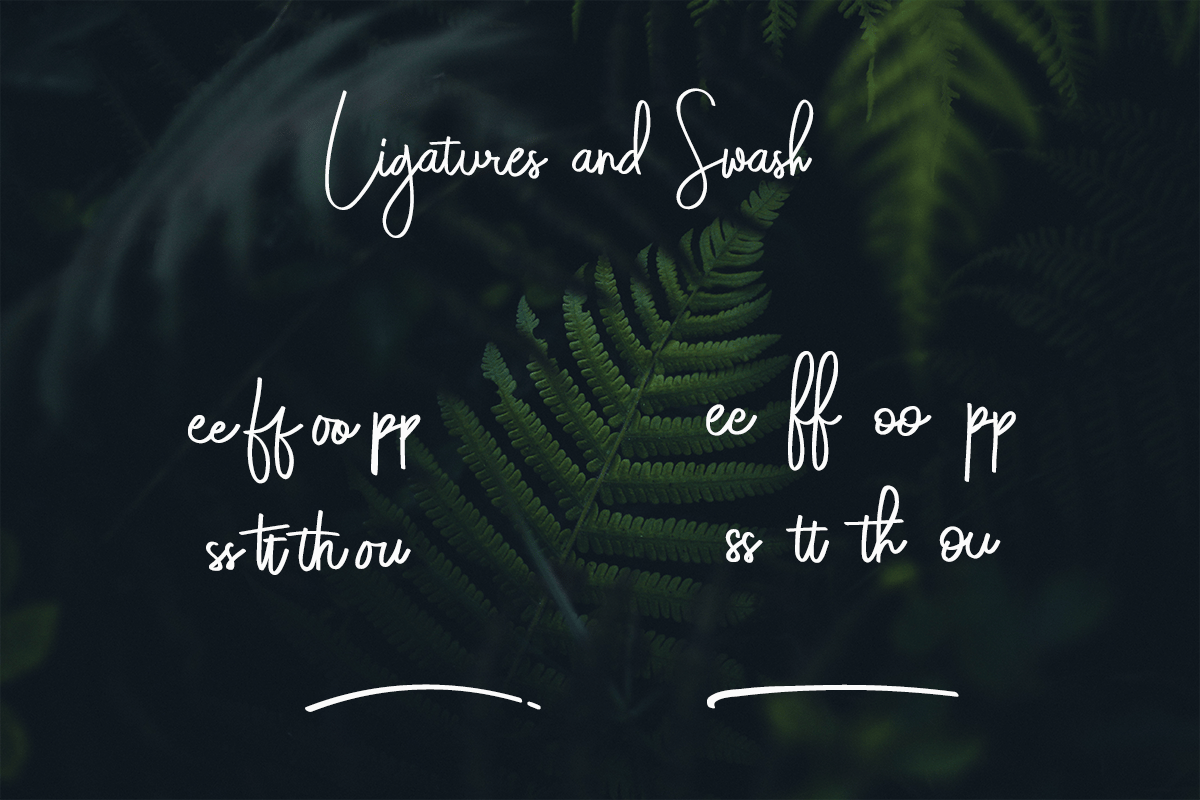 Ligatures and Swash
ee ff oo pp
ss tt th ou
ee ff oo pp
ss tt th ou